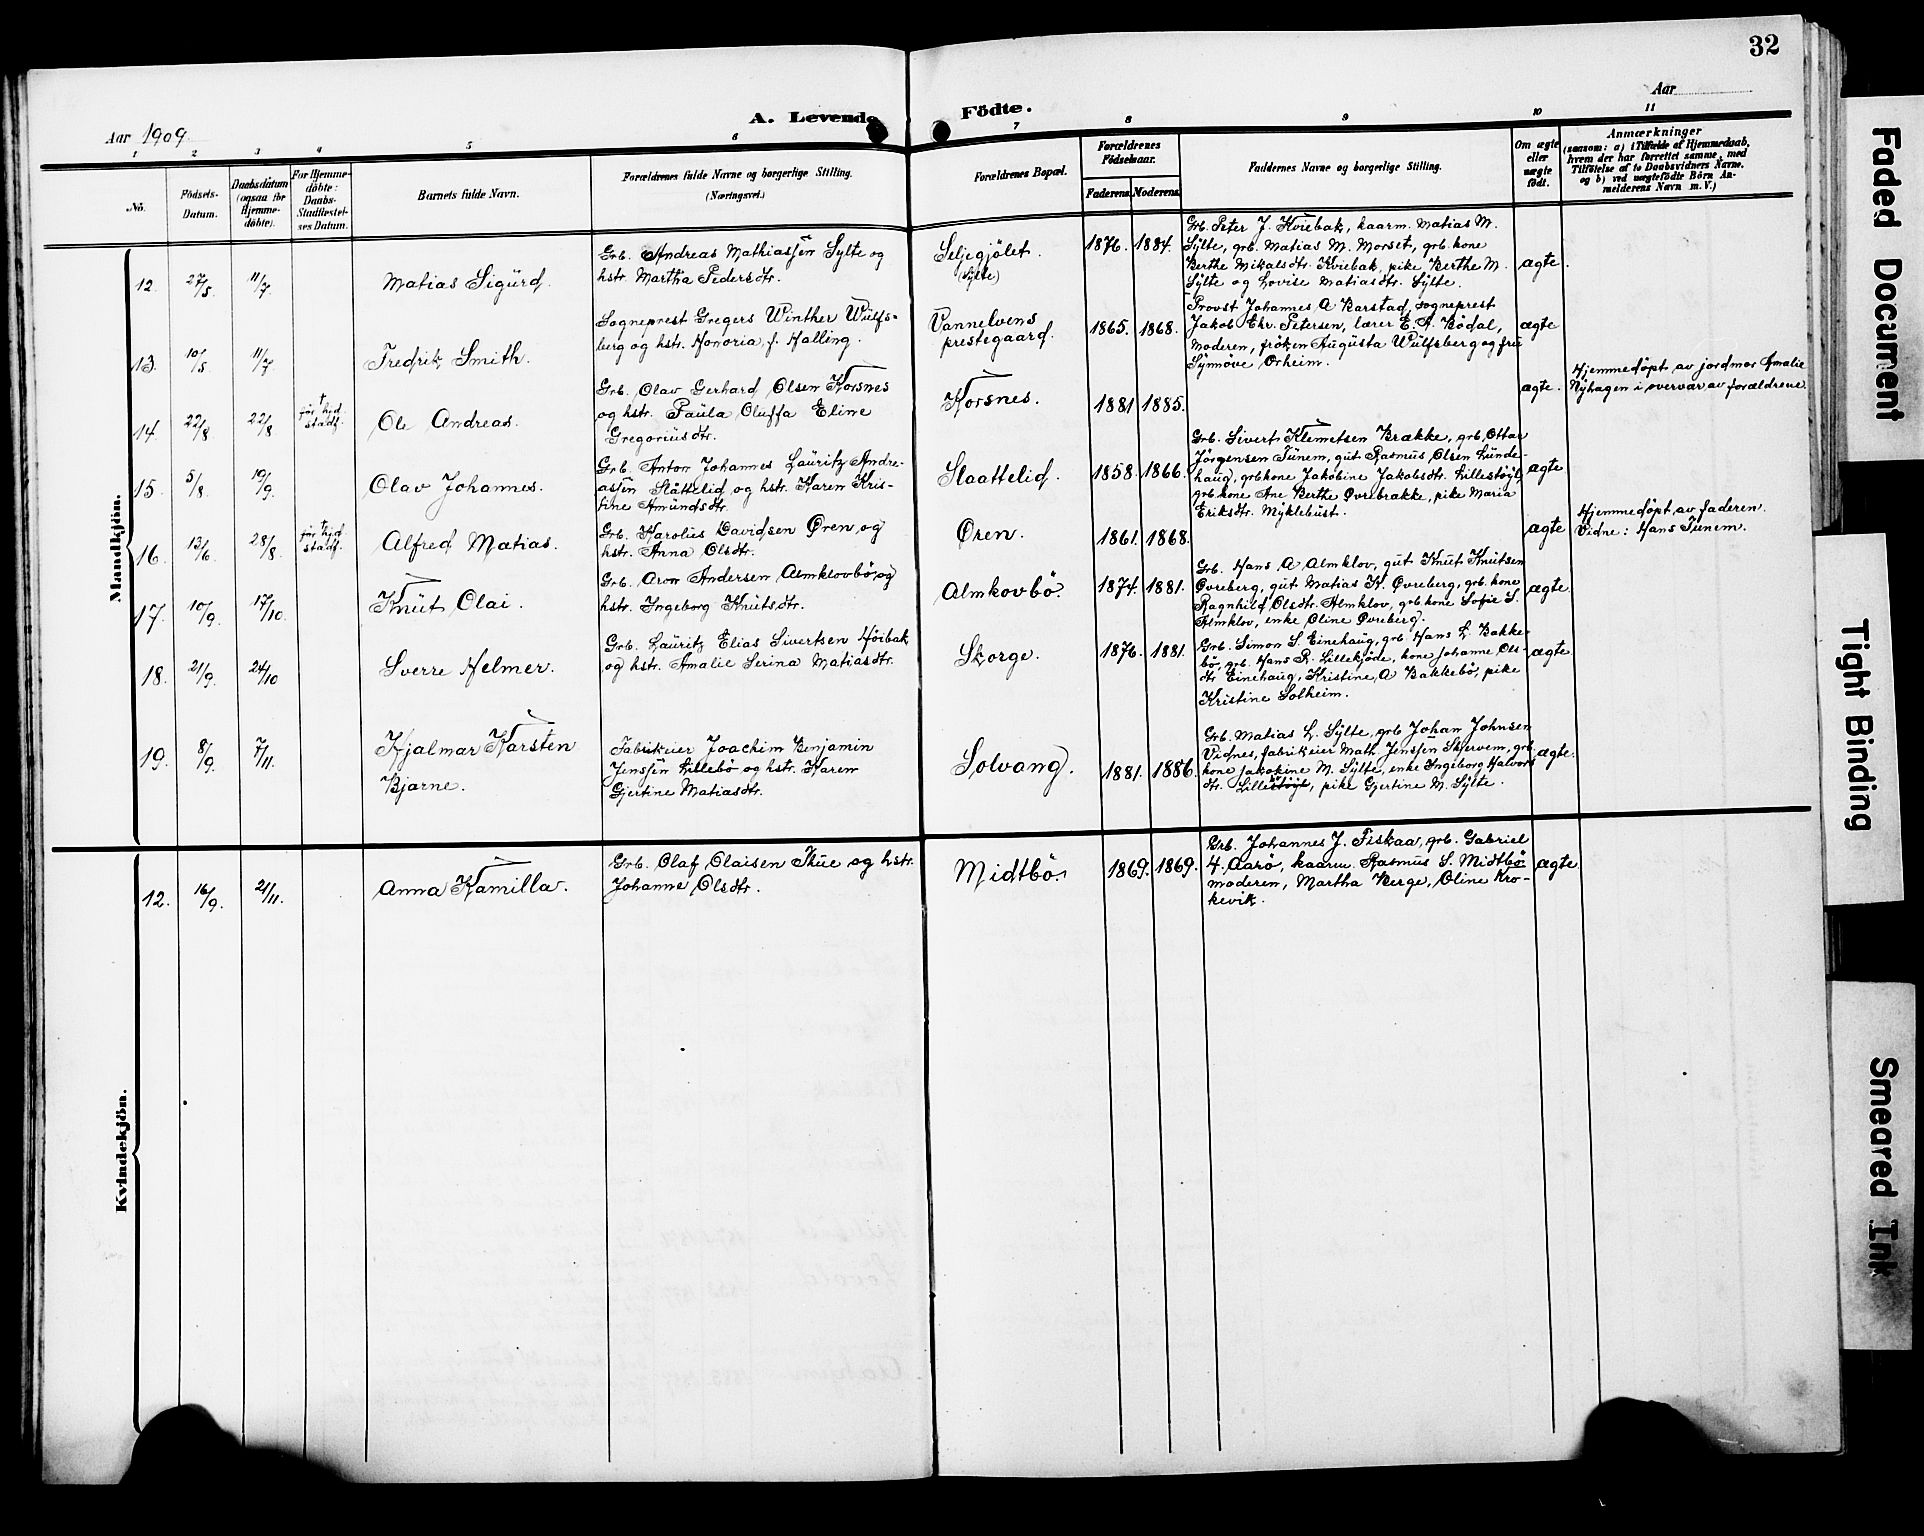 32
A. Levende Födte.
Aar 1909
Aar
1 2 3 4 5 6 7 8 9 10 11
No.
Födsels-
Datum.
Daabsdatum
(ogsaa for
Hjemme-
döbte).
For Hjemme-
döbte:
Daabs-
Stadfæstel-
ses Datum.
Barnets fulde Navn.
Forældrenes fulde Navne og borgerlige Stilling.
(Næringsvei.)
Forældrenes Bopæl.
Forældrenes
Födselsaar.
Faderens. Moderens.
Faddernes Navne og borgerlige Stilling.
Om ægte
eller
uægte
födt.
Anmærkninger
(saasom: a) i Tilfælde af Hjemmedaab,
hvem der har forrettet samme, med
Tilföielse af to Daabsvidners Navne.
og b) ved uægtefödte Börn An-
melderens Navn m. V.)
Mandkjön.
12. 27/5 11/7 Matias Sigurd.
Grb. Andreas Mathiassen Sylte og
hstr. Martha Pedersdtr.
Seljegjölet.
(Sylte)
1876. 1884.
Grb. Peter J. Kviebak, kaarm. Matias M.
Sylte, grb. Matias M. Morset, grb. kone
Berthe Mikalsdtr. Kviebak, pike Berthe M.
Sylte og Lovise Matiasdtr. Sylte.
ægte.
13. 10/5 11/7 Fredrik Smith.
Sogneprest Gregers Winther Wulfs-
berg og hstr. Honoria, f. Halling.
Vannelvens
prestegaard.
1865. 1868.
Provst Johannes A Barstad, sogneprest
Jakob Chr. Petersen, lærer E. A. Bödal,
moderen, fröken Augusta Wulfsberg og fru
Synnöve Orheim.
ægte
14. 22/8 22/8 Ole Andreas.
Grb. Olav Gerhard Olsen Korsnes
og hstr. Paula Oluffa Eline
Gregoriusdtr.
Korsnes.
1881 1885.
ægte.
Hjemmedöpt av jordmor Amalie
Nyhagen i overvær av forældrene.
15. 5/8 19/9 Olav Johannes.
Grb. Anton Johannes Lauritz Andre-
assen Slåttelid og hstr. Karen Kris-
tine Amundsdtr.
Slaattelid.
1858. 1866.
Grb. Sivert Klemetsen Brække, grb. Ottar
Jörgensen Tunem, gut Rasmus Olsen Lunde-
haug, grb kone Jakobine Jakobsdtr. Lillestöyl,
grb. kone Ane Berthe Øvrebrække, pike Maria
Eriksdtr. Myklebust.
ægte
16. 13/6 28/8 Alfred Matias.
Grb. Karolius Davidsen Øren og
hstr. Anna Olsdtr.
Øren.
1861. 1868.
ægte
Hjemmedöpt av faderen.
Vidne: Hans Tunem.
17. 10/9 17/10. Knut Olai.
Grb. Aron Andersen Almklovbö, og
hstr. Ingeborg Knutsdtr.
Almkovbö.
1874. 1881.
Grb. Hans A Almklov, gut Knut Knutsen
Øvreberg, gut Matias K. Øvreberg, grb. kone
Ragnhild Olsdtr. Almklov, grb. kone Sofie S.
Almklov, enke Oline Øvreberg.
ægte.
18. 21/9. 24/10 Sverre Helmer.
Grb. Lauritz Elias Sivertsen Höibak
og hstr. Amalie Serina Matiasdtr.
Skorge.
1876. 1881.
Grb. Simon S. Einehaug, grb Hans L. Bakke-
bö, grb. Hans R. Lillekjöde, kone Johanne Ols-
dtr Einehaug, Kristine A Bakkebö, pike
Kristine Solheim.
ægte.
19. 8/9. 7/11. Hjalmar Karsten
Bjarne.
Fabrikeier Joachim Benjamin
Jenssen Lillebö og hstr. Karen
Gjertine Matiasdtr.
Solvang.
1881. 1886.
Grb. Matias L. Sylte, grb Johan Johnsen
Vidnes, fabrikeier Math. Jenssen Skjervem, grb.
kone Jakobine M. Sylte, enke Ingeborg Halvors
dtr. Lillestöyl, pike Gjertine M. Sylte.
ægte.
Kvindekjön.
12. 16/9. 21/11. Anna Kamilla.
Grb. Olaf Olaisen Thue og hstr.
Johanne Olsdtr.
Midtbö.
1869. 1869.
Grb. Johannes J. Fiskaa, grb. Gabriel
4. Aarö, kaarm. Rasmus S. Midtbö
moderen, Martha Berge, Oline Kro-
kevik.
ægte
Faded Document
Tight Binding
Smeared Ink